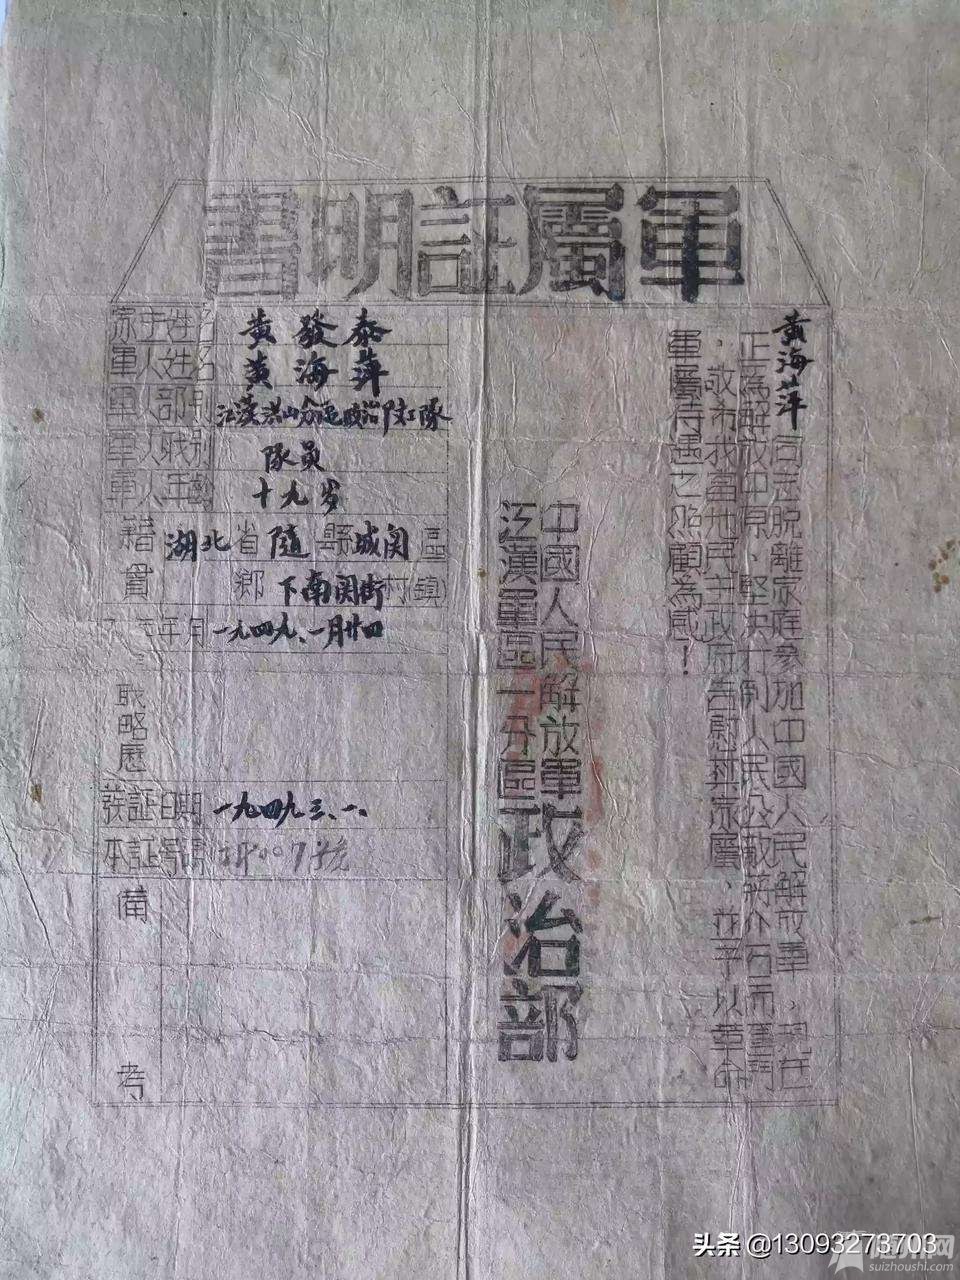 軍屬証明書
黃海萍同志脱離家庭參加中國人民解放軍，現在
正為解放中原，堅決打倒人民公敵蔣介石而奮鬥
，敬希我當地民主政府告慰其家屬，并予以革命
軍屬待遇之照顧為感！
中國人民解放軍
江漢軍區一分區政治部
家主姓名 黃發泰
軍人姓名 黃海萍
軍人部别 江漢洪山分區政治隊
軍人职别 隊員
軍人年齡 十九岁
籍貫 湖北省隨縣城関區
鄉下南関街村(鎮)
年月 一九四九、一月廿四
略歷
發証日期 一九四九、三、一、
本証號碼 007号
備考
头条 @13093273703
随州网
suizhoushi.com